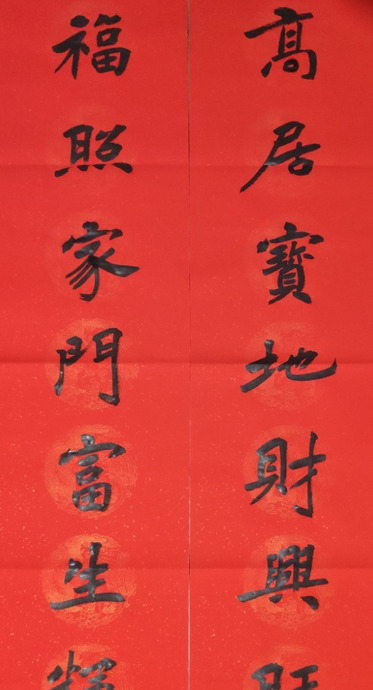 高居寶地財興旺
福照家門富生輝